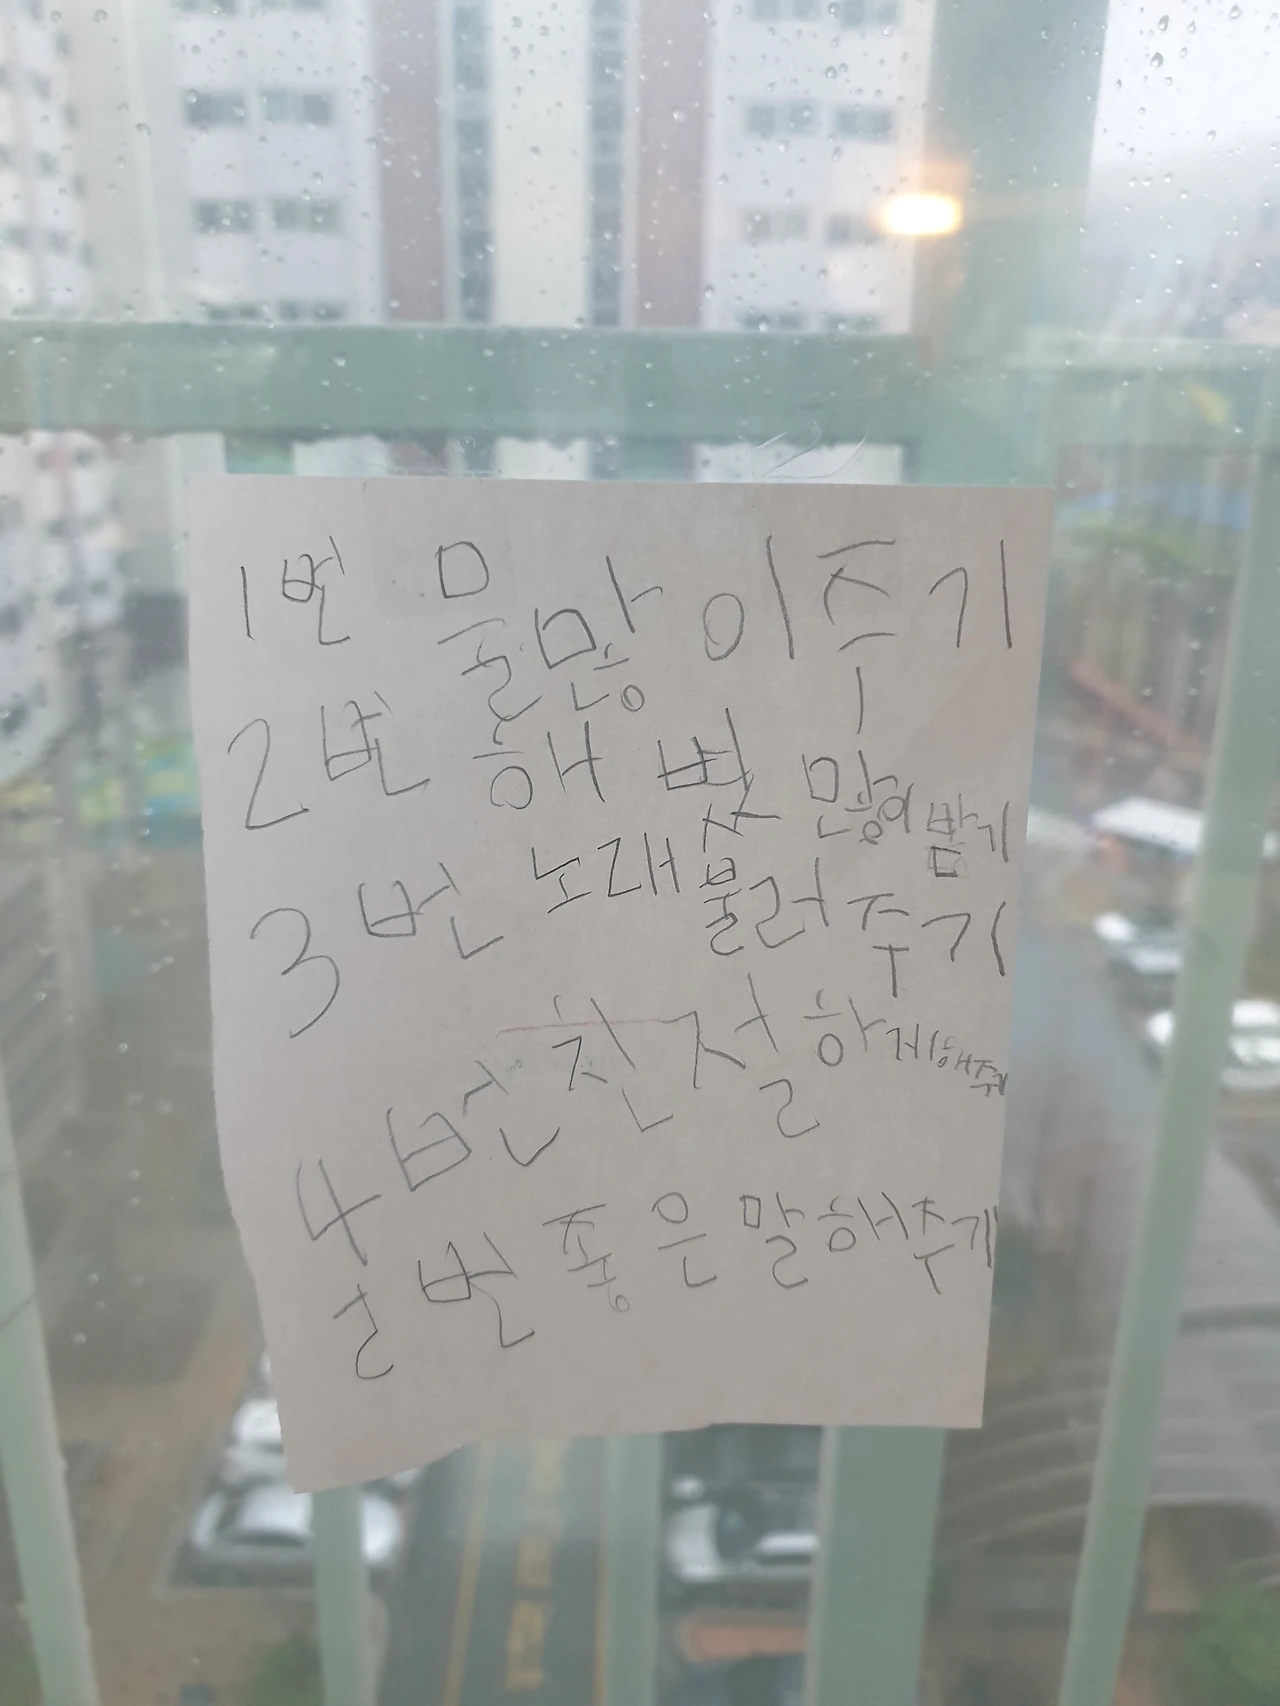 1번 물많이주기
2번 해볏많이밤기
3번 노래불러주기
4번 친절하게해주기
5번 좋은말해주기